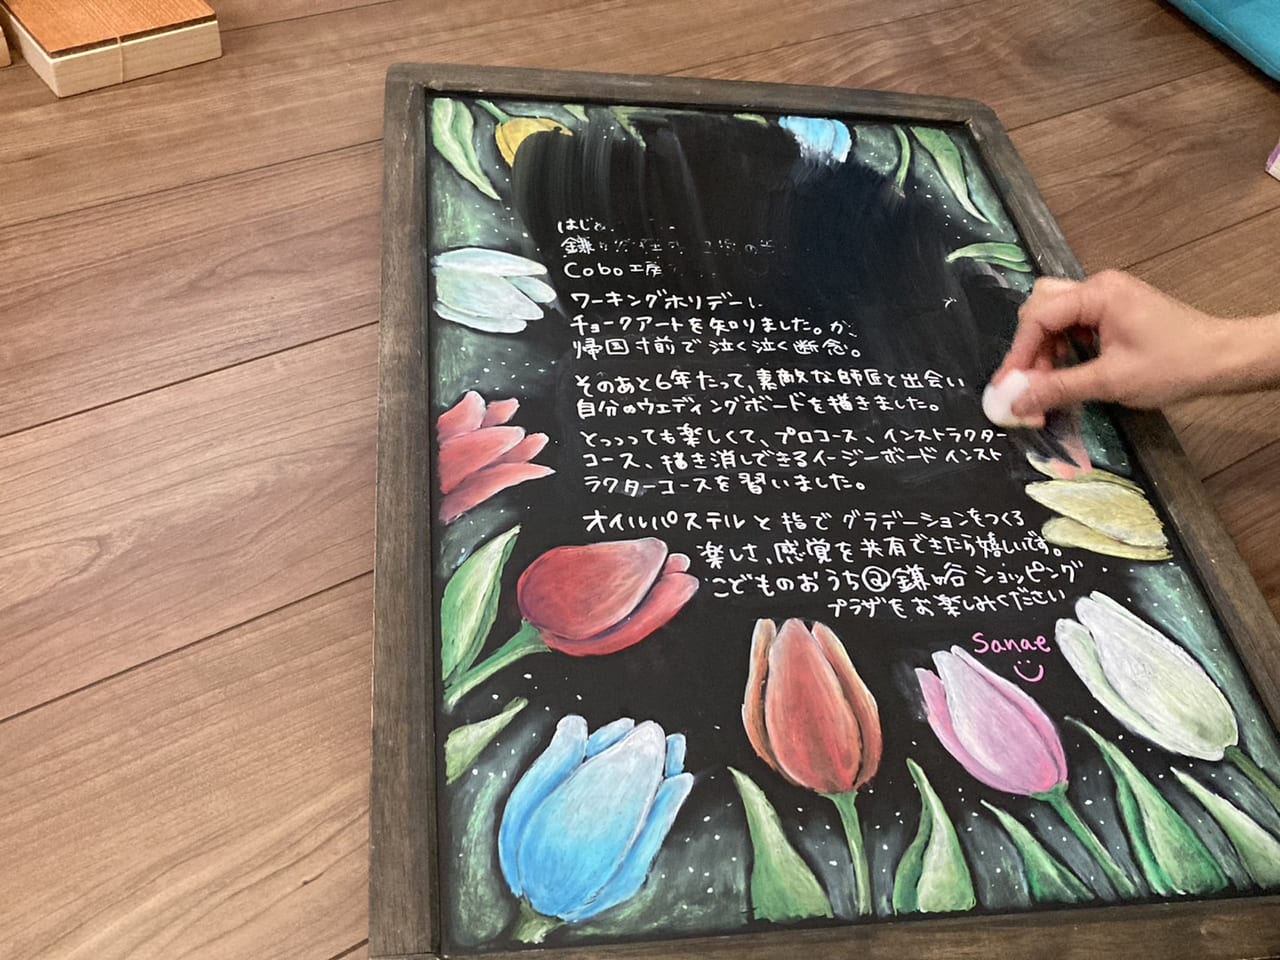 はじめ
鎌
Cobo工房
ワーキングホリデーに
チョークアートを知りました。が、
帰国寸前で泣く泣く断念。
そのあと6年たって、素敵な師匠と出会い
自分のウエディングボードを描きました。
とっっっても楽しくて、プロコース、インストラクター
コース、描き消しできるイージーボードインスト
ラクターコースを習いました。
オイルパステルと指でグラデーションをつくる
楽しさ、感覚を共有できたら嬉しいです。
こどものおうち@鎌ヶ谷ショッピング
プラザをお楽しみください
Sanae